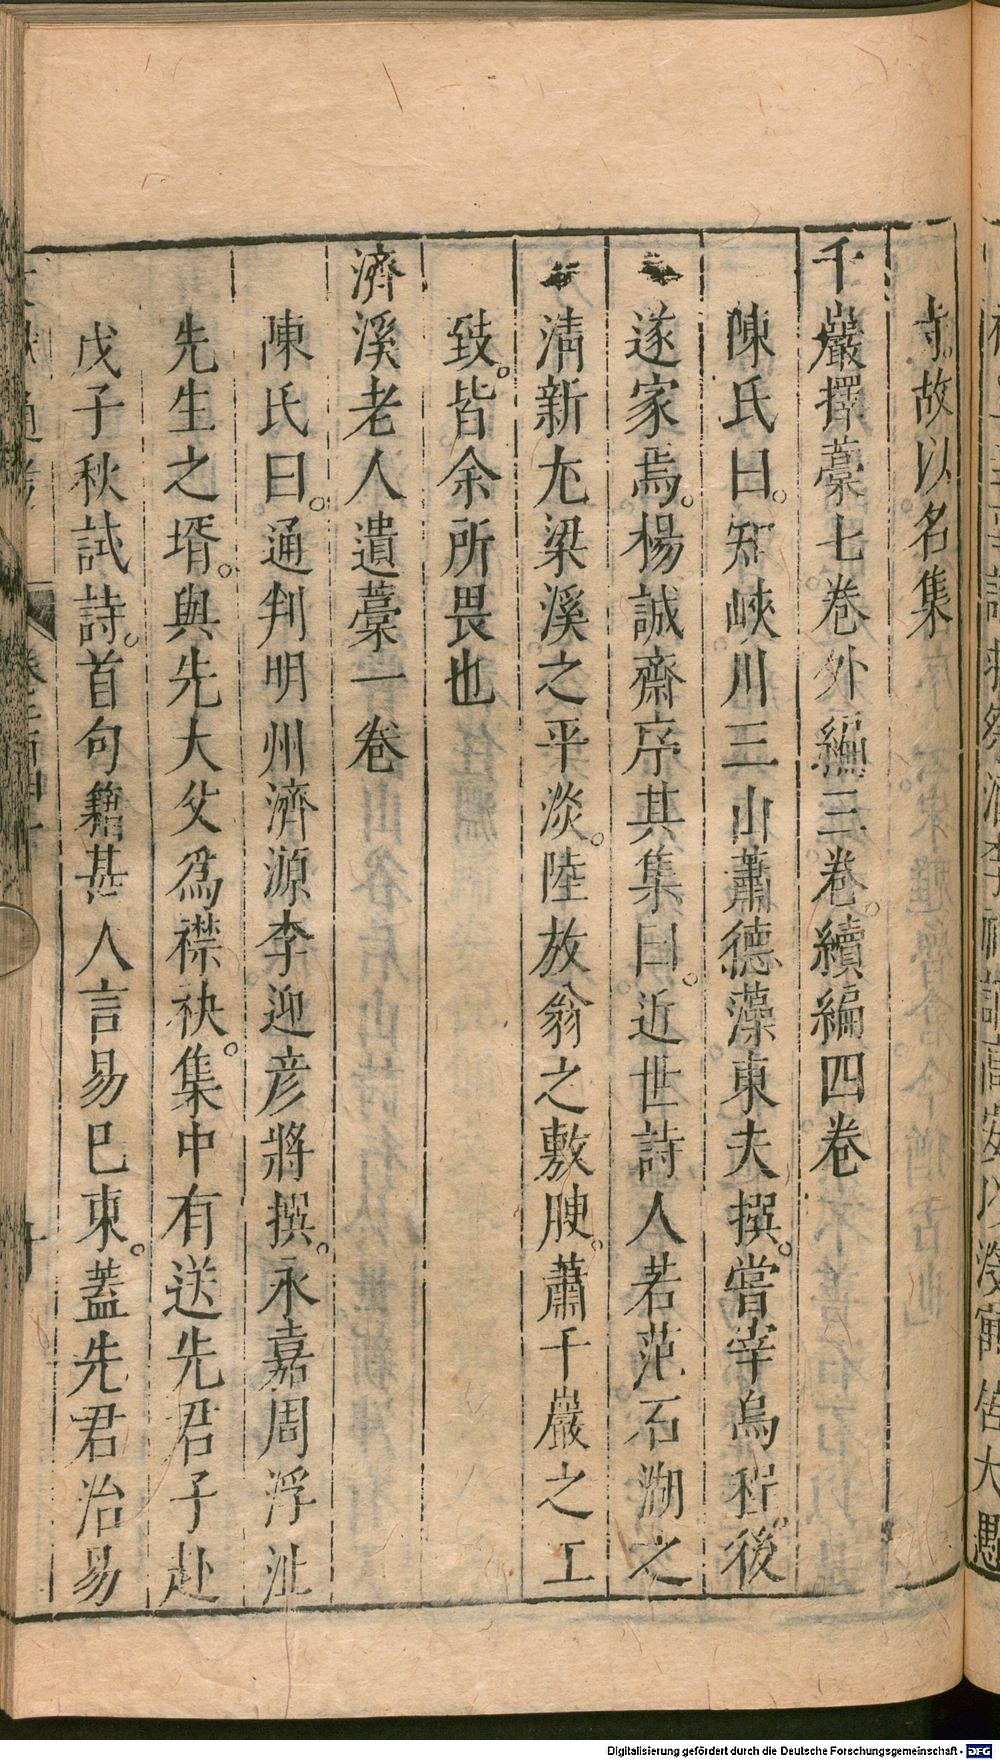 寺。故以名集
千巖擇藁七卷外編三卷。續編四卷
陳氏曰。知峽川三山蕭德藻東夫撰。嘗宰烏程。後
遂家焉。楊誠齋序其集曰。近世詩人若范石湖之
清新尤梁溪之平淡。陸放翁之敷腴。蕭千巖之工
致。皆余所畏也
濟溪老人遺藁一卷
陳氏曰。通判明州濟源李迎彥將撰。永嘉周浮沚
先生之壻。與先大父爲襟袂。集中有送先君子赴
戊子秋試詩。首句籍甚人言易已東。蓋先君治易
Digitalisierung gefördert durch die Deutsche Forschungsgemeinschaft - DFG